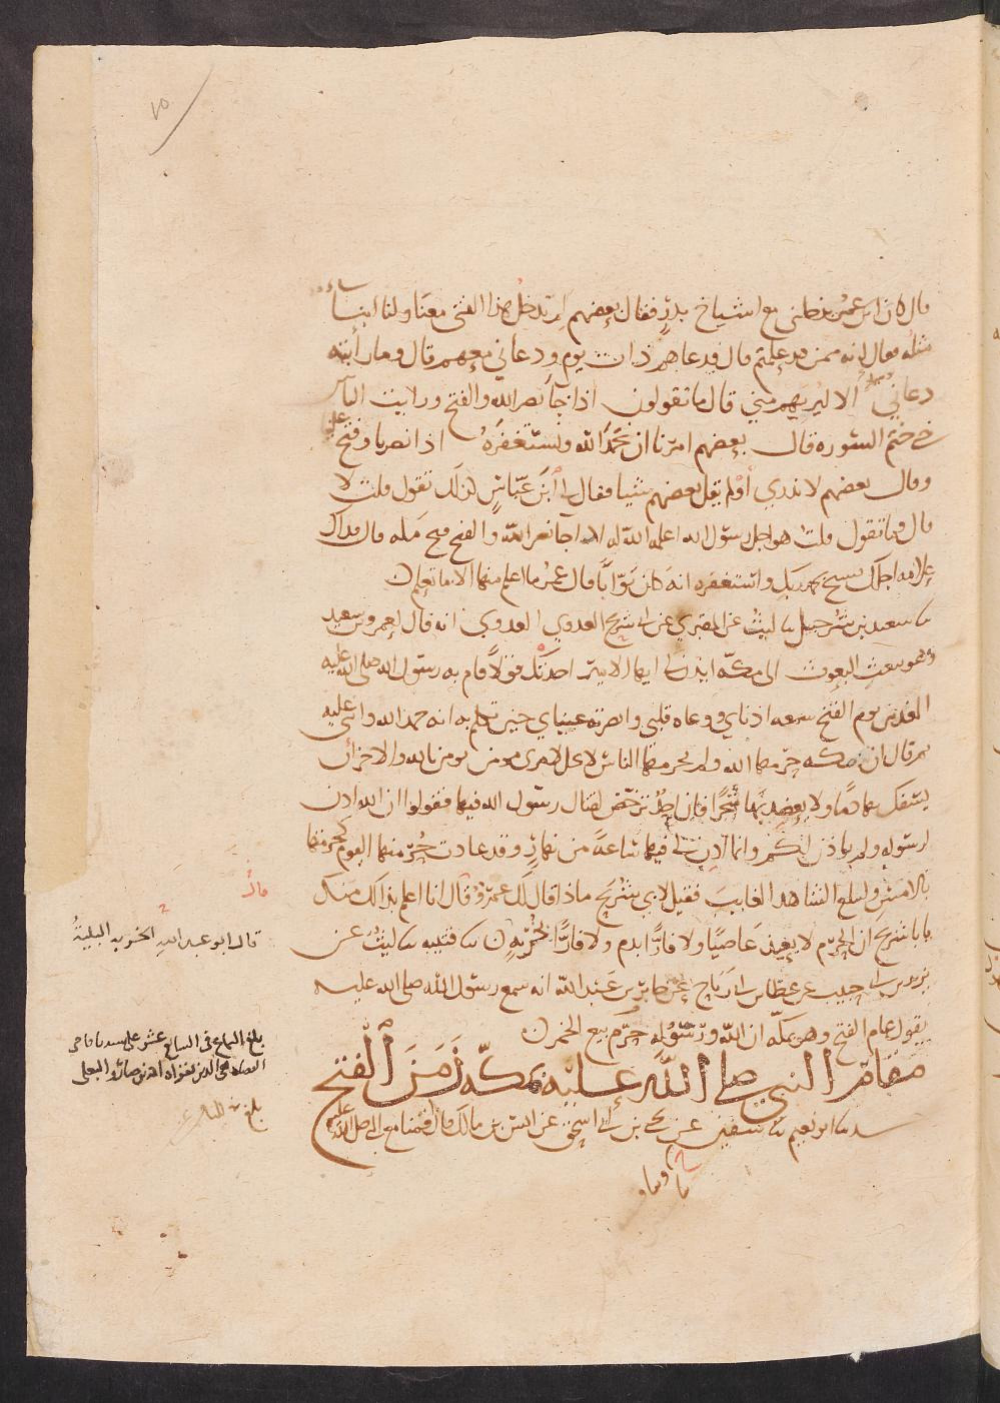 قال كان ابن عمر يدخلني مع اشياخ بدر فقال بعضهم لم تدخل هذا الفتى معنا ولنا ابناء
مثله فقال انه ممن قد علمتم قال فدعاهم ذات يوم ودعاني معهم قال وما رأيته
دعاني يومئذ الا ليريهم مني قال ما تقولون اذا جآ نصر الله والفتح ورايت الناس
حتى ختم السورة قال بعضهم امرنا ان نحمد الله ونستغفره اذا نصرنا وفتح علينا
وقال بعضهم لا ندري أولم يقل بعضهم شيا فقال لي ابن عباس اكذلك تقول قلت لا
قال فما تقول قلت هو اجل رسول الله اعلمه الله له اذا جآ نصر الله والفتح فتح مكه فذاك
علامه اجلك فسبح بحمد ربك واستغفره انه كان توابا قال عمر ما اعلم منها الا ما تعلم
سا سعيد بن شرحبيل سا ليث عن المقبري عن ابي شريح العدوي العدوي انه قال لعمرو بن سعيد
وهو يبعث البعوث الى مكة ايذن لي ايها الامير احدثك قولا قام به رسول الله صلى الله عليه
الغد من يوم الفتح سمعه اذناي ووعاه قلبي وابصرته عيناي حين تكلم به انه حمد الله واثنى عليه
ثم قال ان مكه حرمها الله ولم يحرمها الناس لا يحل لامرئ يومن بالله والاخر ان
يسفك بها دما ولا يعضد بها شجرا فان احد ترخص لقتال رسول الله فيها فقولوا ان الله اذن
لرسوله ولم ياذن لكم وانما اذن لي فيها ساعة من نهار وقد عادت حرمتها اليوم كحرمتها
بالامس وليبلغ الشاهد الغايب فقيل لابي شريح ماذا قال لك عمرو قال انا اعلم بذلك منك
يابا شريح ان الحرم لا يعيذ عاصيا ولا فارا بدم ولا فارا بخربة سا قتيبه سا ليث عن
يزيد بن ابي حبيب عن عطا بن ابي رباح عن جابر بن عبد الله انه سمع رسول الله صلى الله عليه
يقول عام الفتح وهو بمكة ان الله ورسوله حرم بيع الخمر
مقام النبي صلى الله عليه بمكة زمن الفتح
سا ابو نعيم سا سفين عن يحيى بن ابي اسحق عن انس بن مالك قال اقمنا مع النبي صلى الله عليه
قال ابو عبد الله الخربه البلية
بلغ السماع في السابع عشر على سيدنا قاضي